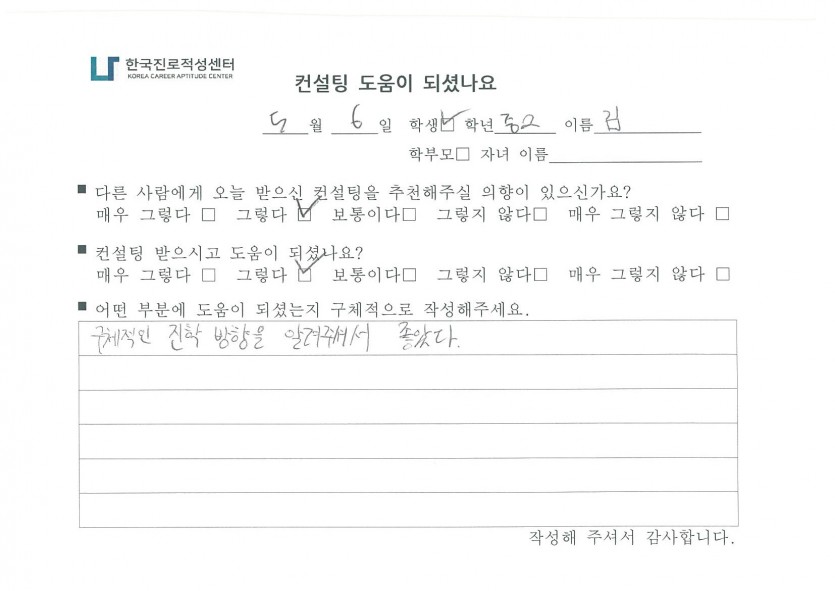 한국진로적성센터
KOREA CAREER APTITUDE CENTER
컨설팅 도움이 되셨나요
5 월 6 일 학생☑ 학년 중2 이름 김
학부모□ 자녀 이름
■ 다른 사람에게 오늘 받으신 컨설팅을 추천해주실 의향이 있으신가요?
매우 그렇다 □ 그렇다 ☑ 보통이다□ 그렇지 않다□ 매우 그렇지 않다 □
■ 컨설팅 받으시고 도움이 되셨나요?
매우 그렇다 □ 그렇다 ☑ 보통이다□ 그렇지 않다□ 매우 그렇지 않다 □
■ 어떤 부분에 도움이 되셨는지 구체적으로 작성해주세요.
구체적인 진학 방향을 알려주셔서 좋았다.
작성해 주셔서 감사합니다.